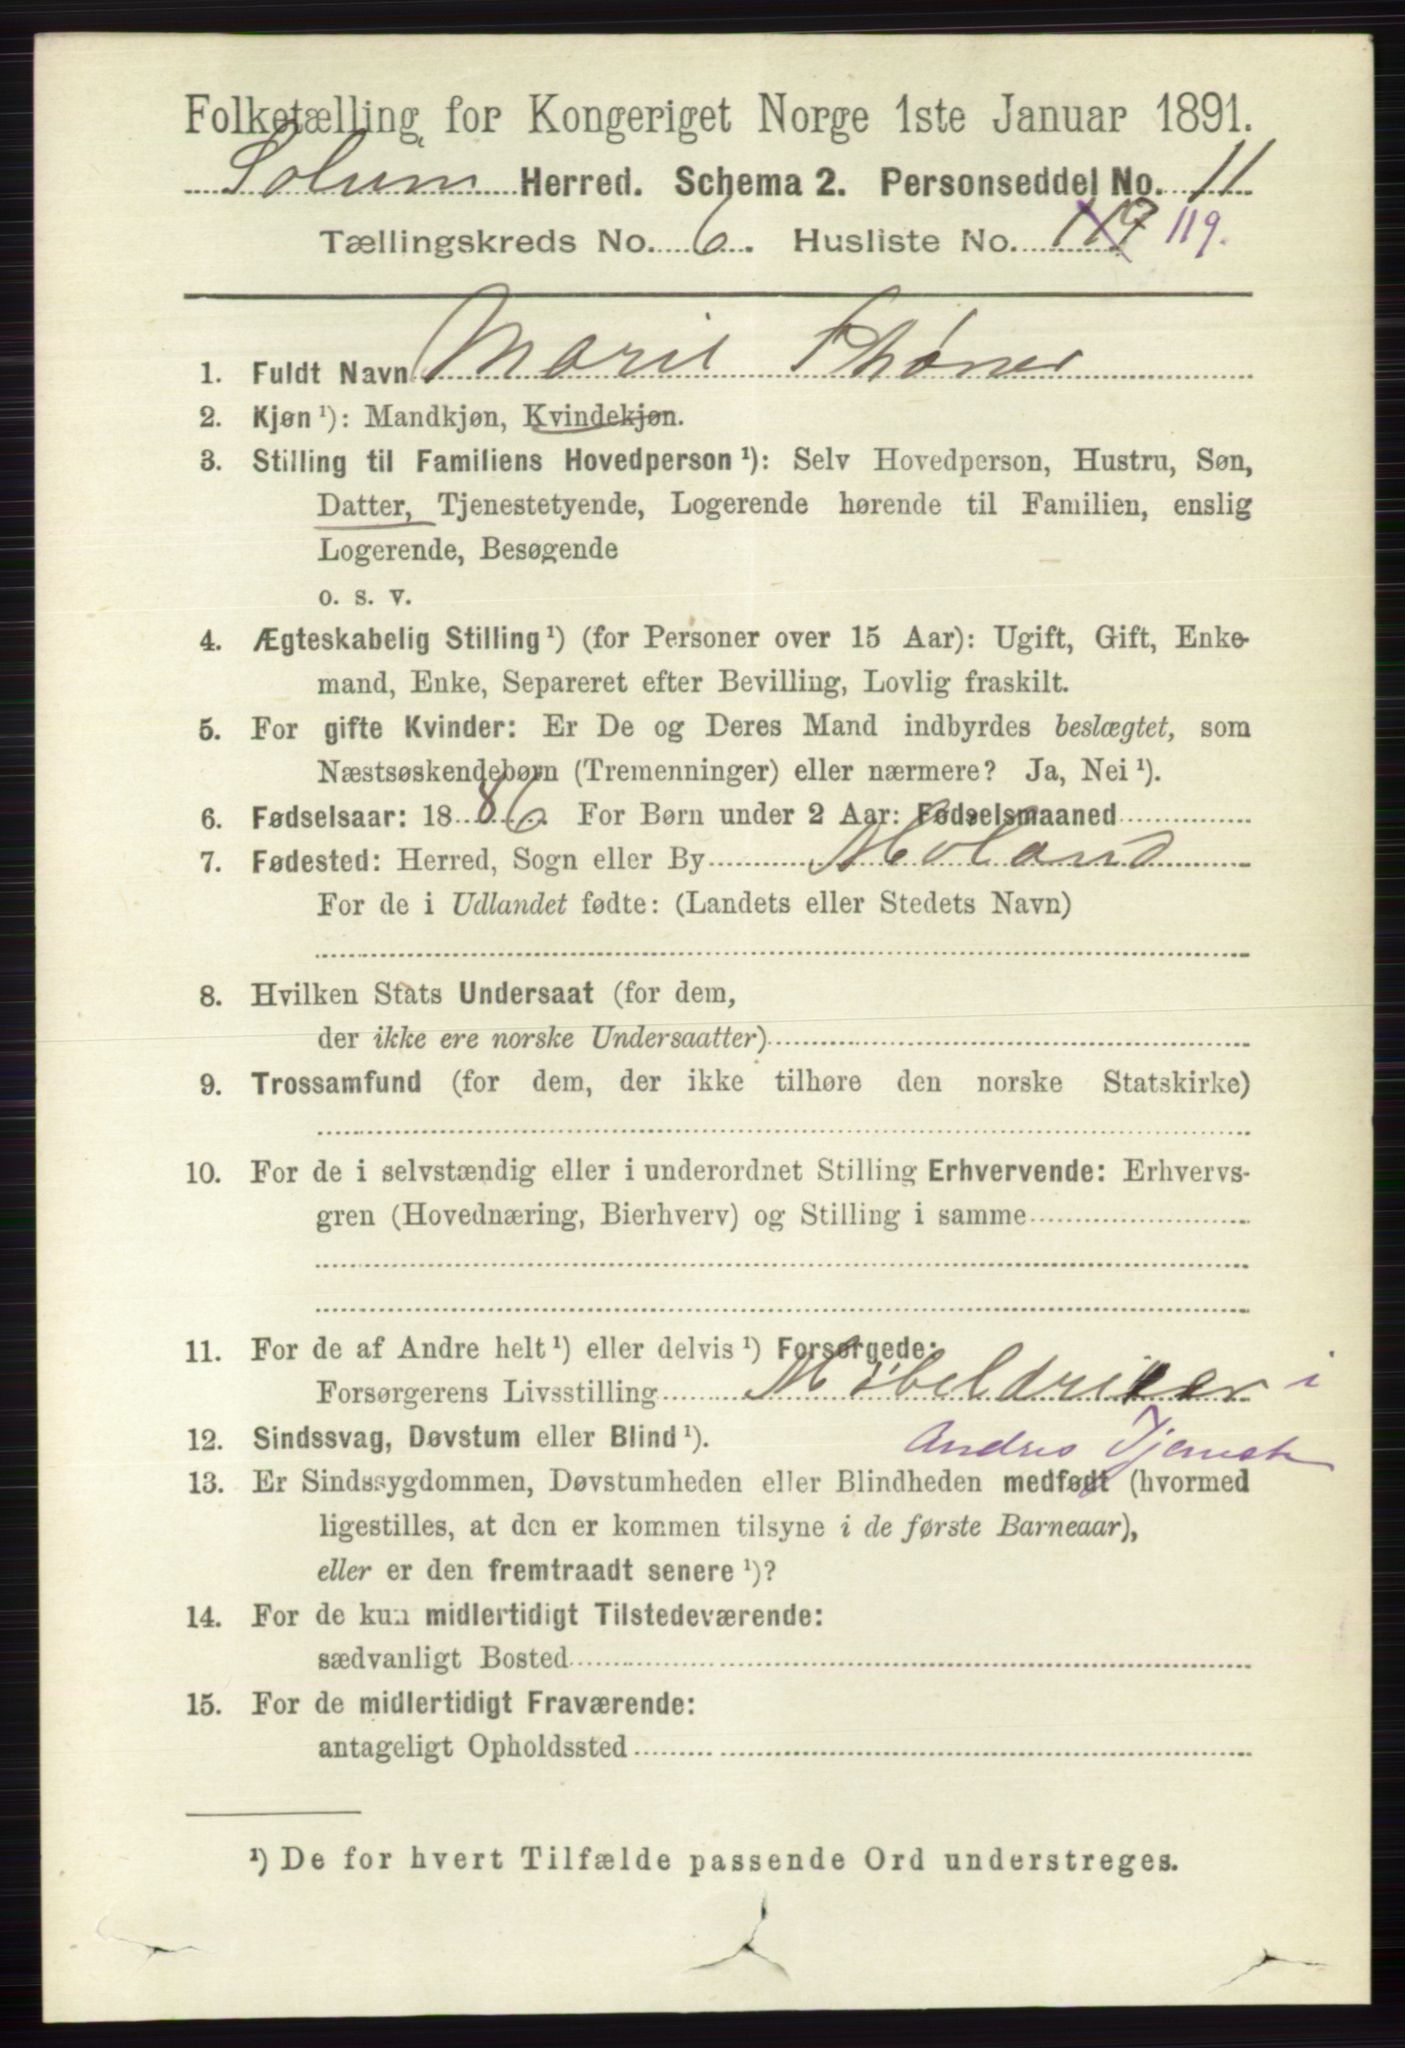 Folketælling for Kongeriget Norge 1ste Januar 1891.
Solum Herred. Schema 2. Personseddel No. 11
Tællingskreds No. 6. Husliste No. 117 119.
1. Fuldt Navn Marie Thorner
2. Kjøn¹): Mandkjøn, Kvindekjøn.
3. Stilling til Familiens Hovedperson¹): Selv Hovedperson, Hustru, Søn,
Datter, Tjenestetyende, Logerende hørende til Familien, enslig
Logerende, Besøgende
o. s. v.
4. Ægteskabelig Stilling¹) (for Personer over 15 Aar): Ugift, Gift, Enke-
mand, Enke, Separeret efter Bevilling, Lovlig fraskilt.
5. For gifte Kvinder: Er De og Deres Mand indbyrdes beslægtet, som
Næstsøskendebørn (Tremenninger) eller nærmere? Ja, Nei¹).
6. Fødselsaar: 1886. For Børn under 2 Aar: Fødselsmaaned
7. Fødested: Herred, Sogn eller By Moland
For de i Udlandet fødte: (Landets eller Stedets Navn)
8. Hvilken Stats Undersaat (for dem,
der ikke ere norske Undersaatter)
9. Trossamfund (for dem, der ikke tilhøre den norske Statskirke)
10. For de i selvstændig eller i underordnet Stilling Erhvervende: Erhvervs-
gren (Hovednæring, Bierhverv) og Stilling i samme
11. For de af Andre helt¹) eller delvis¹) Forsørgede:
Forsørgerens Livsstilling Møbeldriver i
12. Sindssvag, Døvstum eller Blind¹). Andres Tjeneste
13. Er Sindssygdommen, Døvstumheden eller Blindheden medfødt (hvormed
ligestilles, at den er kommen tilsyne i de første Barneaar),
eller er den fremtraadt senere¹)?
14. For de kun midlertidigt Tilstedeværende:
sædvanligt Bosted
15. For de midlertidigt Fraværende:
antageligt Opholdssted
¹) De for hvert Tilfælde passende Ord understreges.